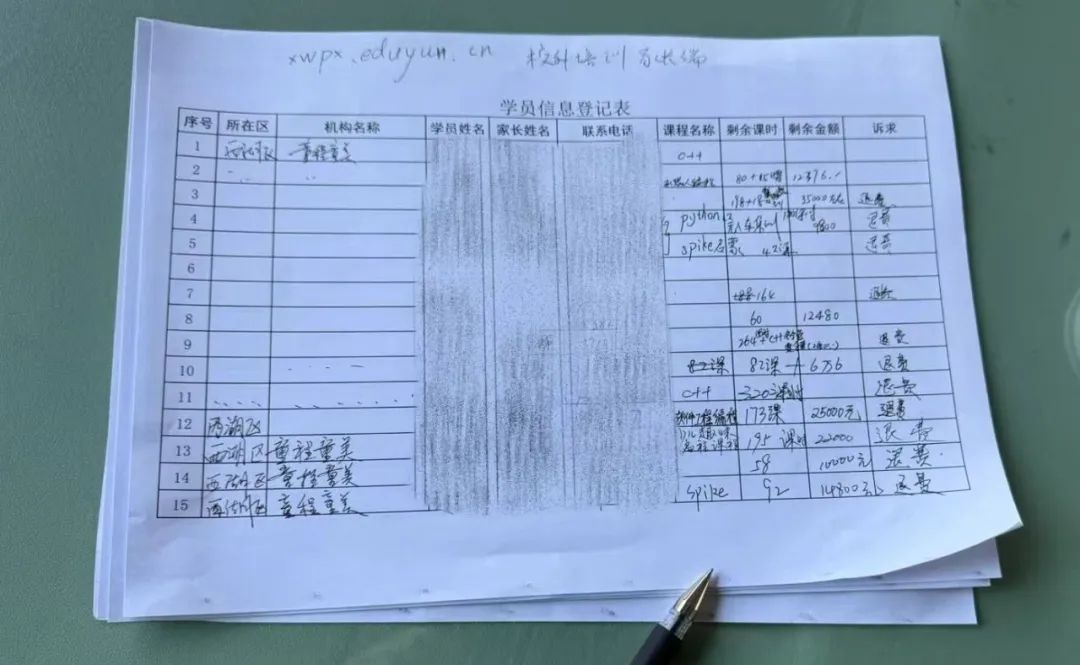 xwpx.eduyun.cn 校外培训家长端
学员信息登记表
序号 所在区 机构名称 学员姓名 家长姓名 联系电话 课程名称 剩余课时 剩余金额 诉求
1 西湖区 童程童美 C++
2 80+15赠
3 35000 退费
4 python 9800 退费
5 spike启蒙 42课 退费
6
7 164 退费
8 60 12480
9 264 退费
10 82课 退费
11 C++ 320课时 退费
12 西湖区 173课 25000元 退费
13 西湖区 童程童美 195课时 22000 退费
14 西湖区 童程童美 58 10000元 退费
15 西湖区 童程童美 spike 92 14800元 退费